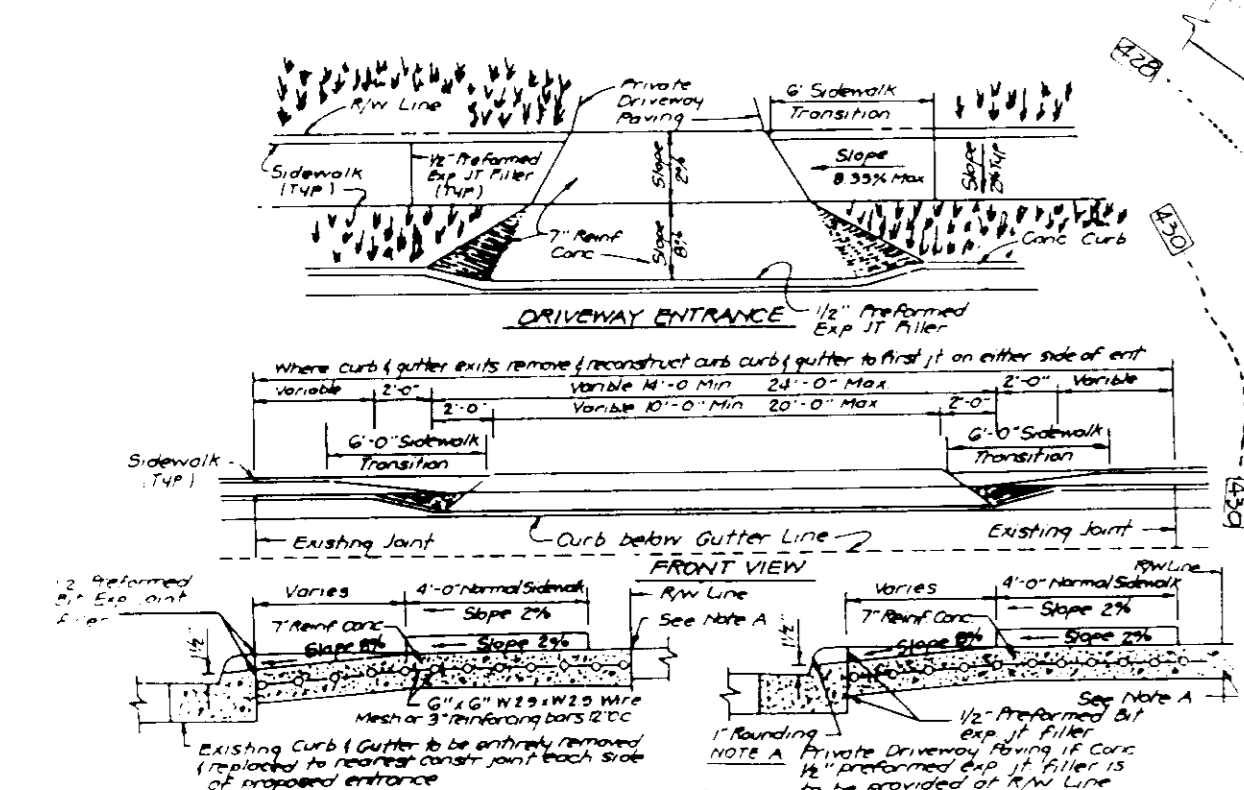 428
Private
Driveway
Paving
6' Sidewalk
Transition
R/W Line
Sidewalk
(Typ)
1/2" Preformed
Exp JT Filler
(Typ)
Slope
2%
Slope
8.33% Max
Slope
2% Typ
430
7" Reinf
Conc
Slope
8%
Conc Curb
DRIVEWAY ENTRANCE
1/2" Preformed
Exp JT Filler
Where curb & gutter exits remove & reconstruct curb curb & gutter to first jt on either side of ent
Variable 2'-0" Varible 14'-0 Min 24'-0" Max 2'-0" Variable
2'-0" Varible 10'-0" Min 20'-0" Max 2'-0"
6'-0" Sidewalk
Transition
6'-0" Sidewalk
Transition
Sidewalk
(Typ)
430
Existing Joint
Curb below Gutter Line
Existing Joint
FRONT VIEW
2 Preformed
Bit Exp Joint
filler
Varies
4'-0" Normal Sidewalk
Slope 2%
R/W Line
See Note A
7" Reinf Conc
Slope 8%
Slope 2%
1 1/2"
6" x 6" W2.9 x W2.9 Wire
Mesh or 3" reinforcing bars 12"CC
Existing Curb & Gutter to be entirely removed
& replaced to nearest constr joint each side
of proposed entrance
R/W Line
Varies
4'-0" Normal Sidewalk
Slope 2%
7" Reinf Conc
Slope 8%
Slope 2%
1 1/2"
See Note A
1/2" Preformed Bit
exp. jt filler
1" Rounding
NOTE A Private Driveway Paving if Conc
1/2" preformed exp jt. filler is
to be provided at R/W Line